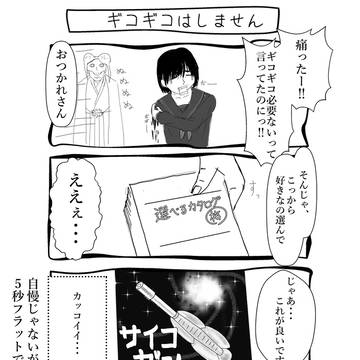 ギコギコはしません
痛ったー!!
ギコギコ必要ないって
言ってたのにっ!!
ぬぬぬぬ
おつかれさん
そんじゃ、
こっから
好きなの選んで
すっ
選べるカタログ
ええぇ・・・
じゃあ・・
これが良いです
サイコ
ガン
カッコイイ・・・
自慢じゃないが
5秒フラットで